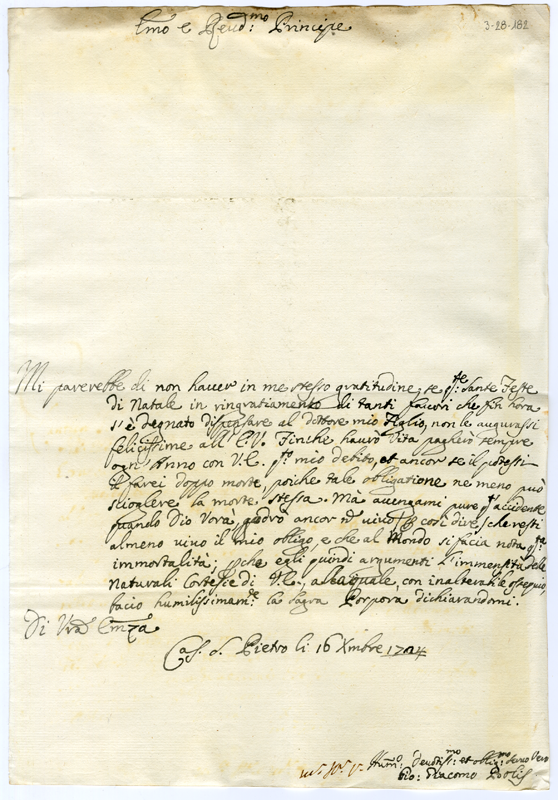 3-28-182
Emo e Revd:mo Principe
Mi parerebbe di non hauer in me stesso gratitudine, se q:te Sante Feste
di Natale in ringratiamento di tanti fauori che fin hora
s'è degnato dispensare al Dottore mio Figlio, non le augurassi
felicissime all'E.V. Finche haurò Vita pagherò sempre
ogn'Anno con V.E. q:to mio debito, et ancor se il potessi
il farei doppo morte, poiche tale obligatione ne meno può
sciogliere la morte stessa. Mà auengami pure q:t accidente
quando Dio Vorà, godrò ancor nõ uiuo cosi dire, che resti
almeno uiuo il mio obligo, e che al Mondo si facia nota q:ta
immortalità, che egli quindi argumenti l'immensità delle
Naturali Cortesie di V.E., alla quale, con inalterabile ossequio,
facio humilissimam:e la Sagra Porpora dichiarandomi.
Di Vra Emza
Cas. S. Pietro li 16 Xmbre 1724
Hum:o Deuotiss:mo et obblig:mo Seruo Vero
Gio: Giacomo